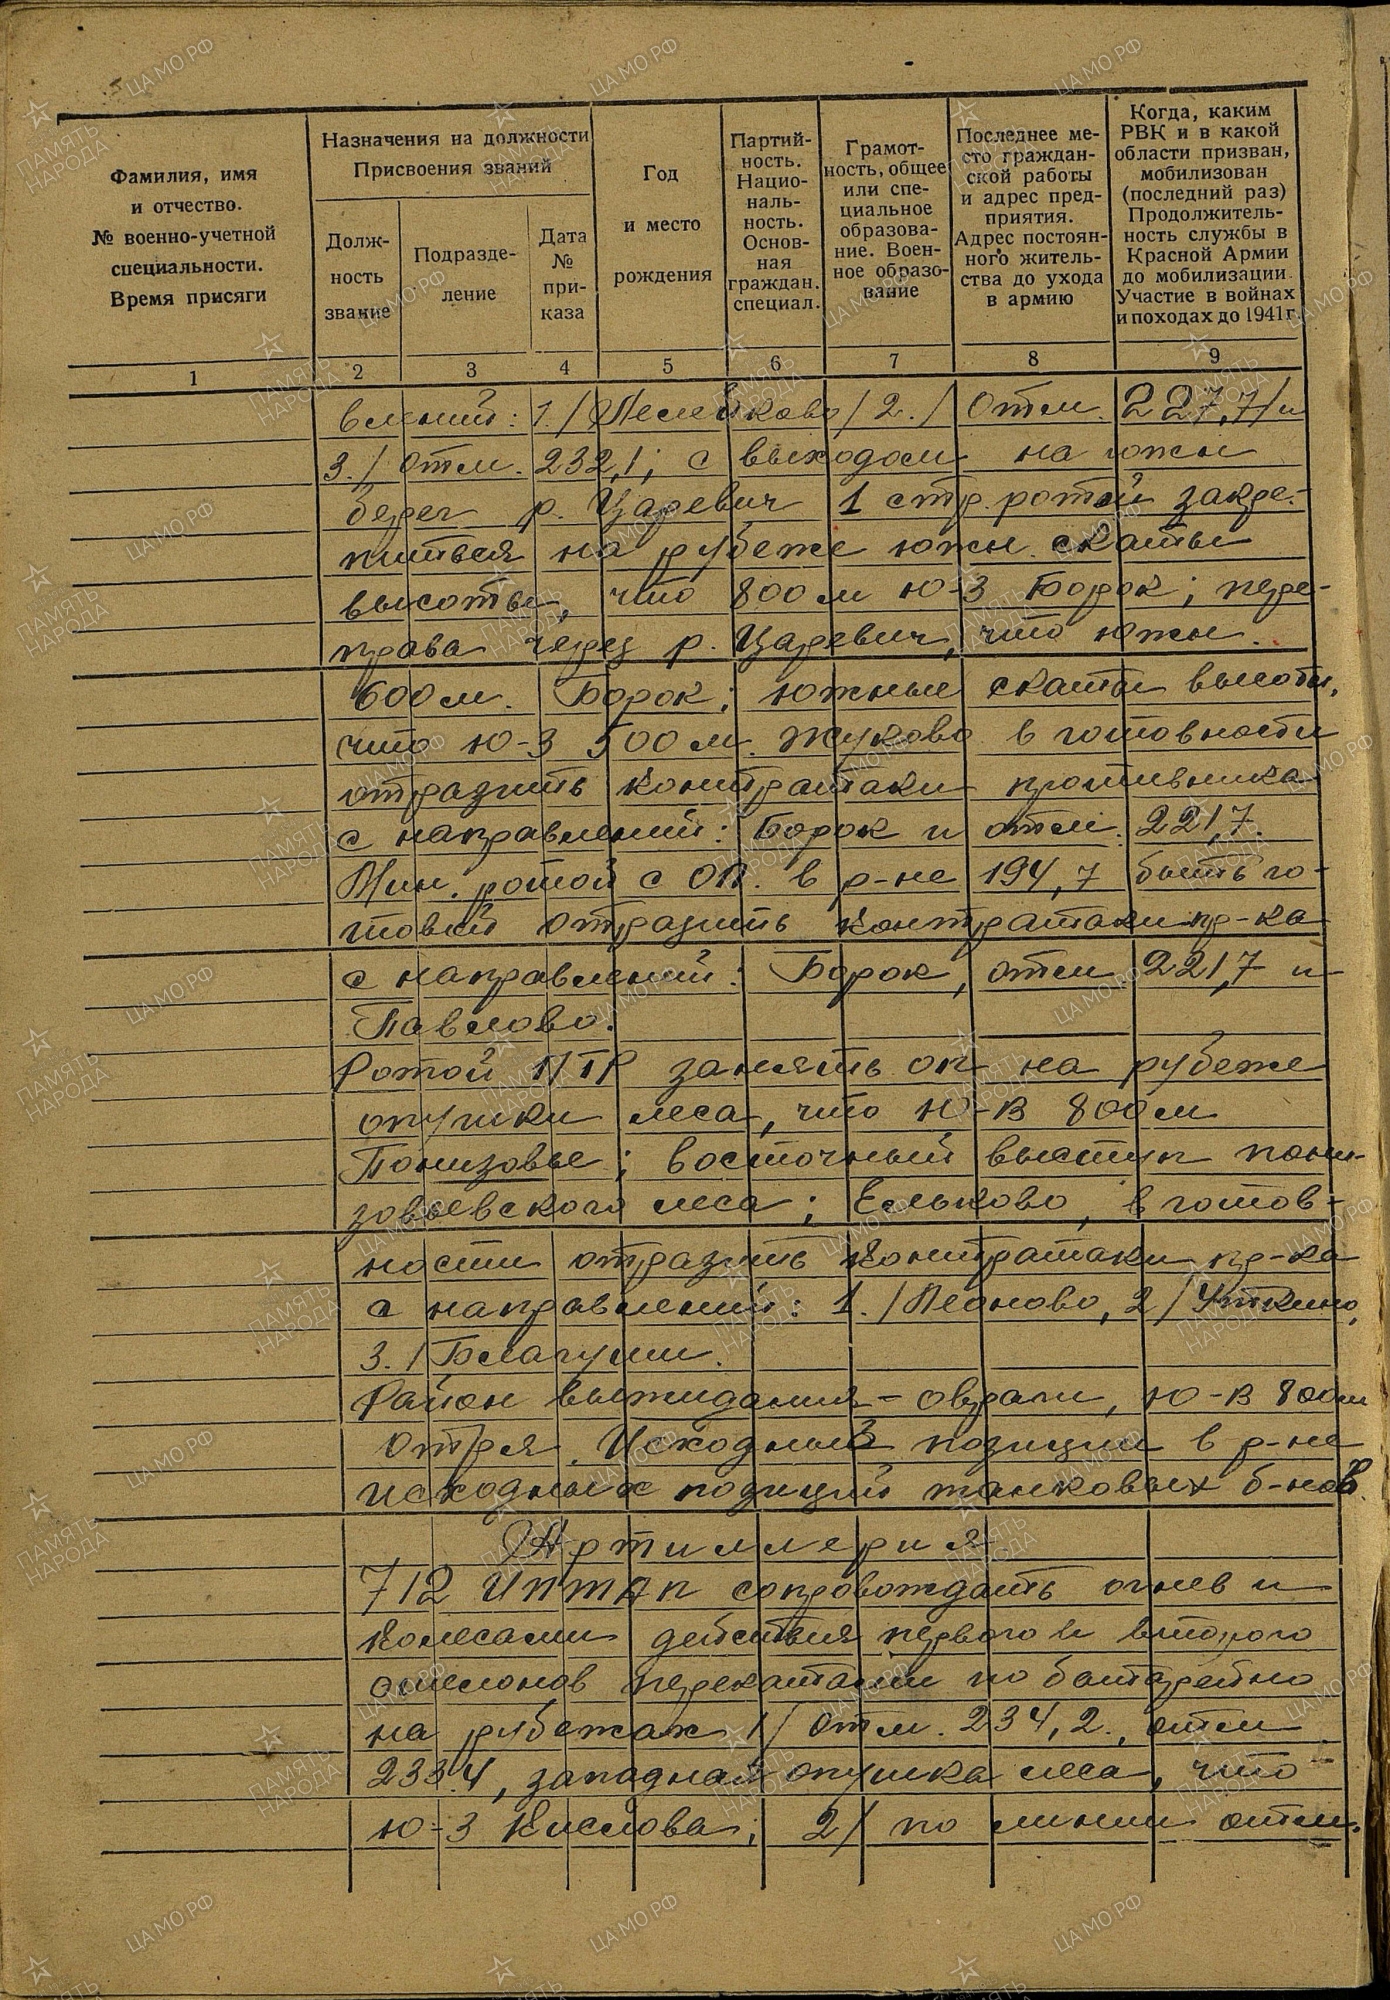 Фамилия, имя
и отчество.
№ военно-учетной
специальности.
Время присяги
Назначения на должности
Присвоения званий
Долж-
ность
звание
Подразде-
ление
Дата
№
при-
каза
Год
и место
рождения
Партий-
ность.
Нацио-
наль-
ность.
Основ-
ная
граждан.
специал.
Грамот-
ность, общее
или спе-
циальное
образова-
ние. Воен-
ное образо-
вание
Последнее ме-
сто граждан-
ской работы
и адрес пред-
приятия.
Адрес постоян-
ного житель-
ства до ухода
в армию
Когда, каким
РВК и в какой
области призван,
мобилизован
(последний раз)
Продолжитель-
ность службы в
Красной Армии
до мобилизации.
Участие в войнах
и походах до 1941 г.
1 2 3 4 5 6 7 8 9
влений: 1./ 2./ Отм. 227,7/и
3./ отм. 232,1; с выходом на южн
берег р. Царевич 1 стр. ротой закре-
питься на рубеже южн. скаты
высоты, что 800 м Ю-З Борок; пере-
права через р. Царевич, что южн.
600 м. Борок; южные скаты высоты,
что Ю-З 500 м. Жуково в готовности
отразить контратаки противника
с направлений: Борок и отм. 221,7.
Мин. ротой с ОП. в р-не 194,7 быть го-
товой отразить контратаки пр-ка
с направлений: Борок, отм 221,7 и
Павлово.
Ротой ПТР занять ОП на рубеже
опушки леса, что Ю-В 800 м
Понизовье; восточный выступ пони-
зовьевского леса; Ельково, в готов-
ности отразить контратаки пр-ка
с направлений: 1./ Леоново, 2/ Уткино,
3./ Благуши.
Район выжидания - овраги, Ю-В 800 м
Отря. Исходные позиции в р-не
исходных позиций танковых б-нов.
Артиллерия
712 ИПТАП сопровождать огнем и
колесами действия первого и второго
эшелонов перекатами по батарейно
на рубежах 1/ отм. 234,2., отм
233.4, западная опушка леса, что
Ю-З Кислова; 2/ по линии отм.
ПАМЯТЬ НАРОДА
ЦА МО РФ